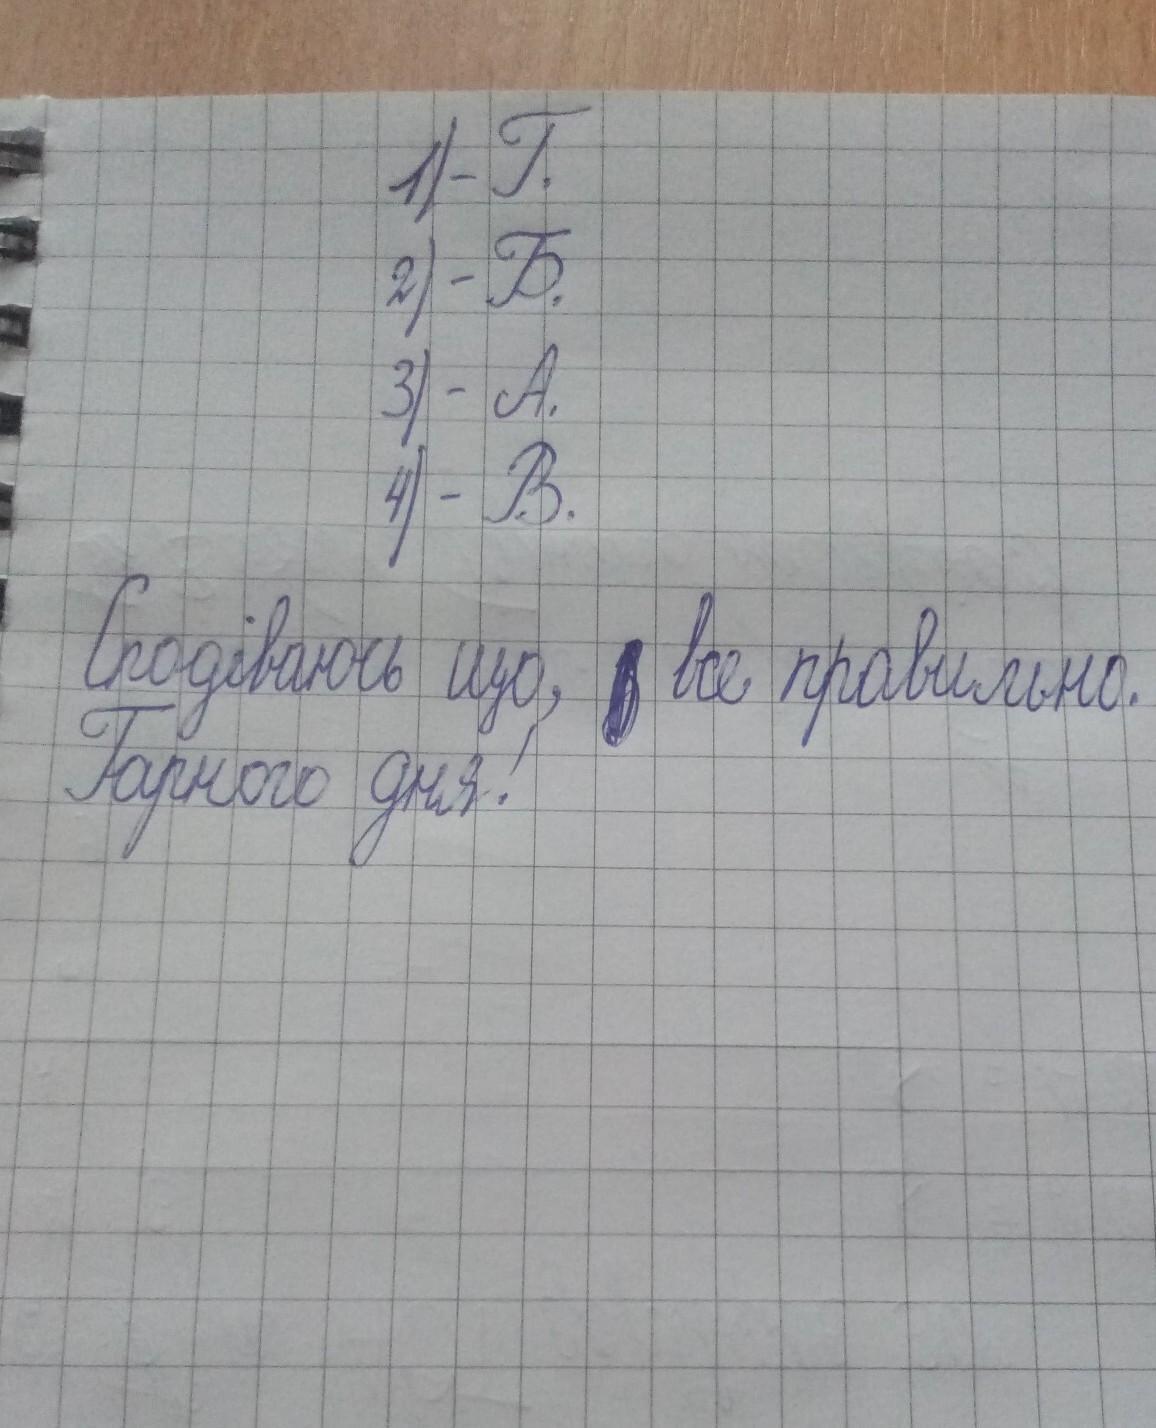 1) - Г.
2) - Б.
3) - А.
4) - В.
Сподіваюсь що, все правильно.
Гарного дня!